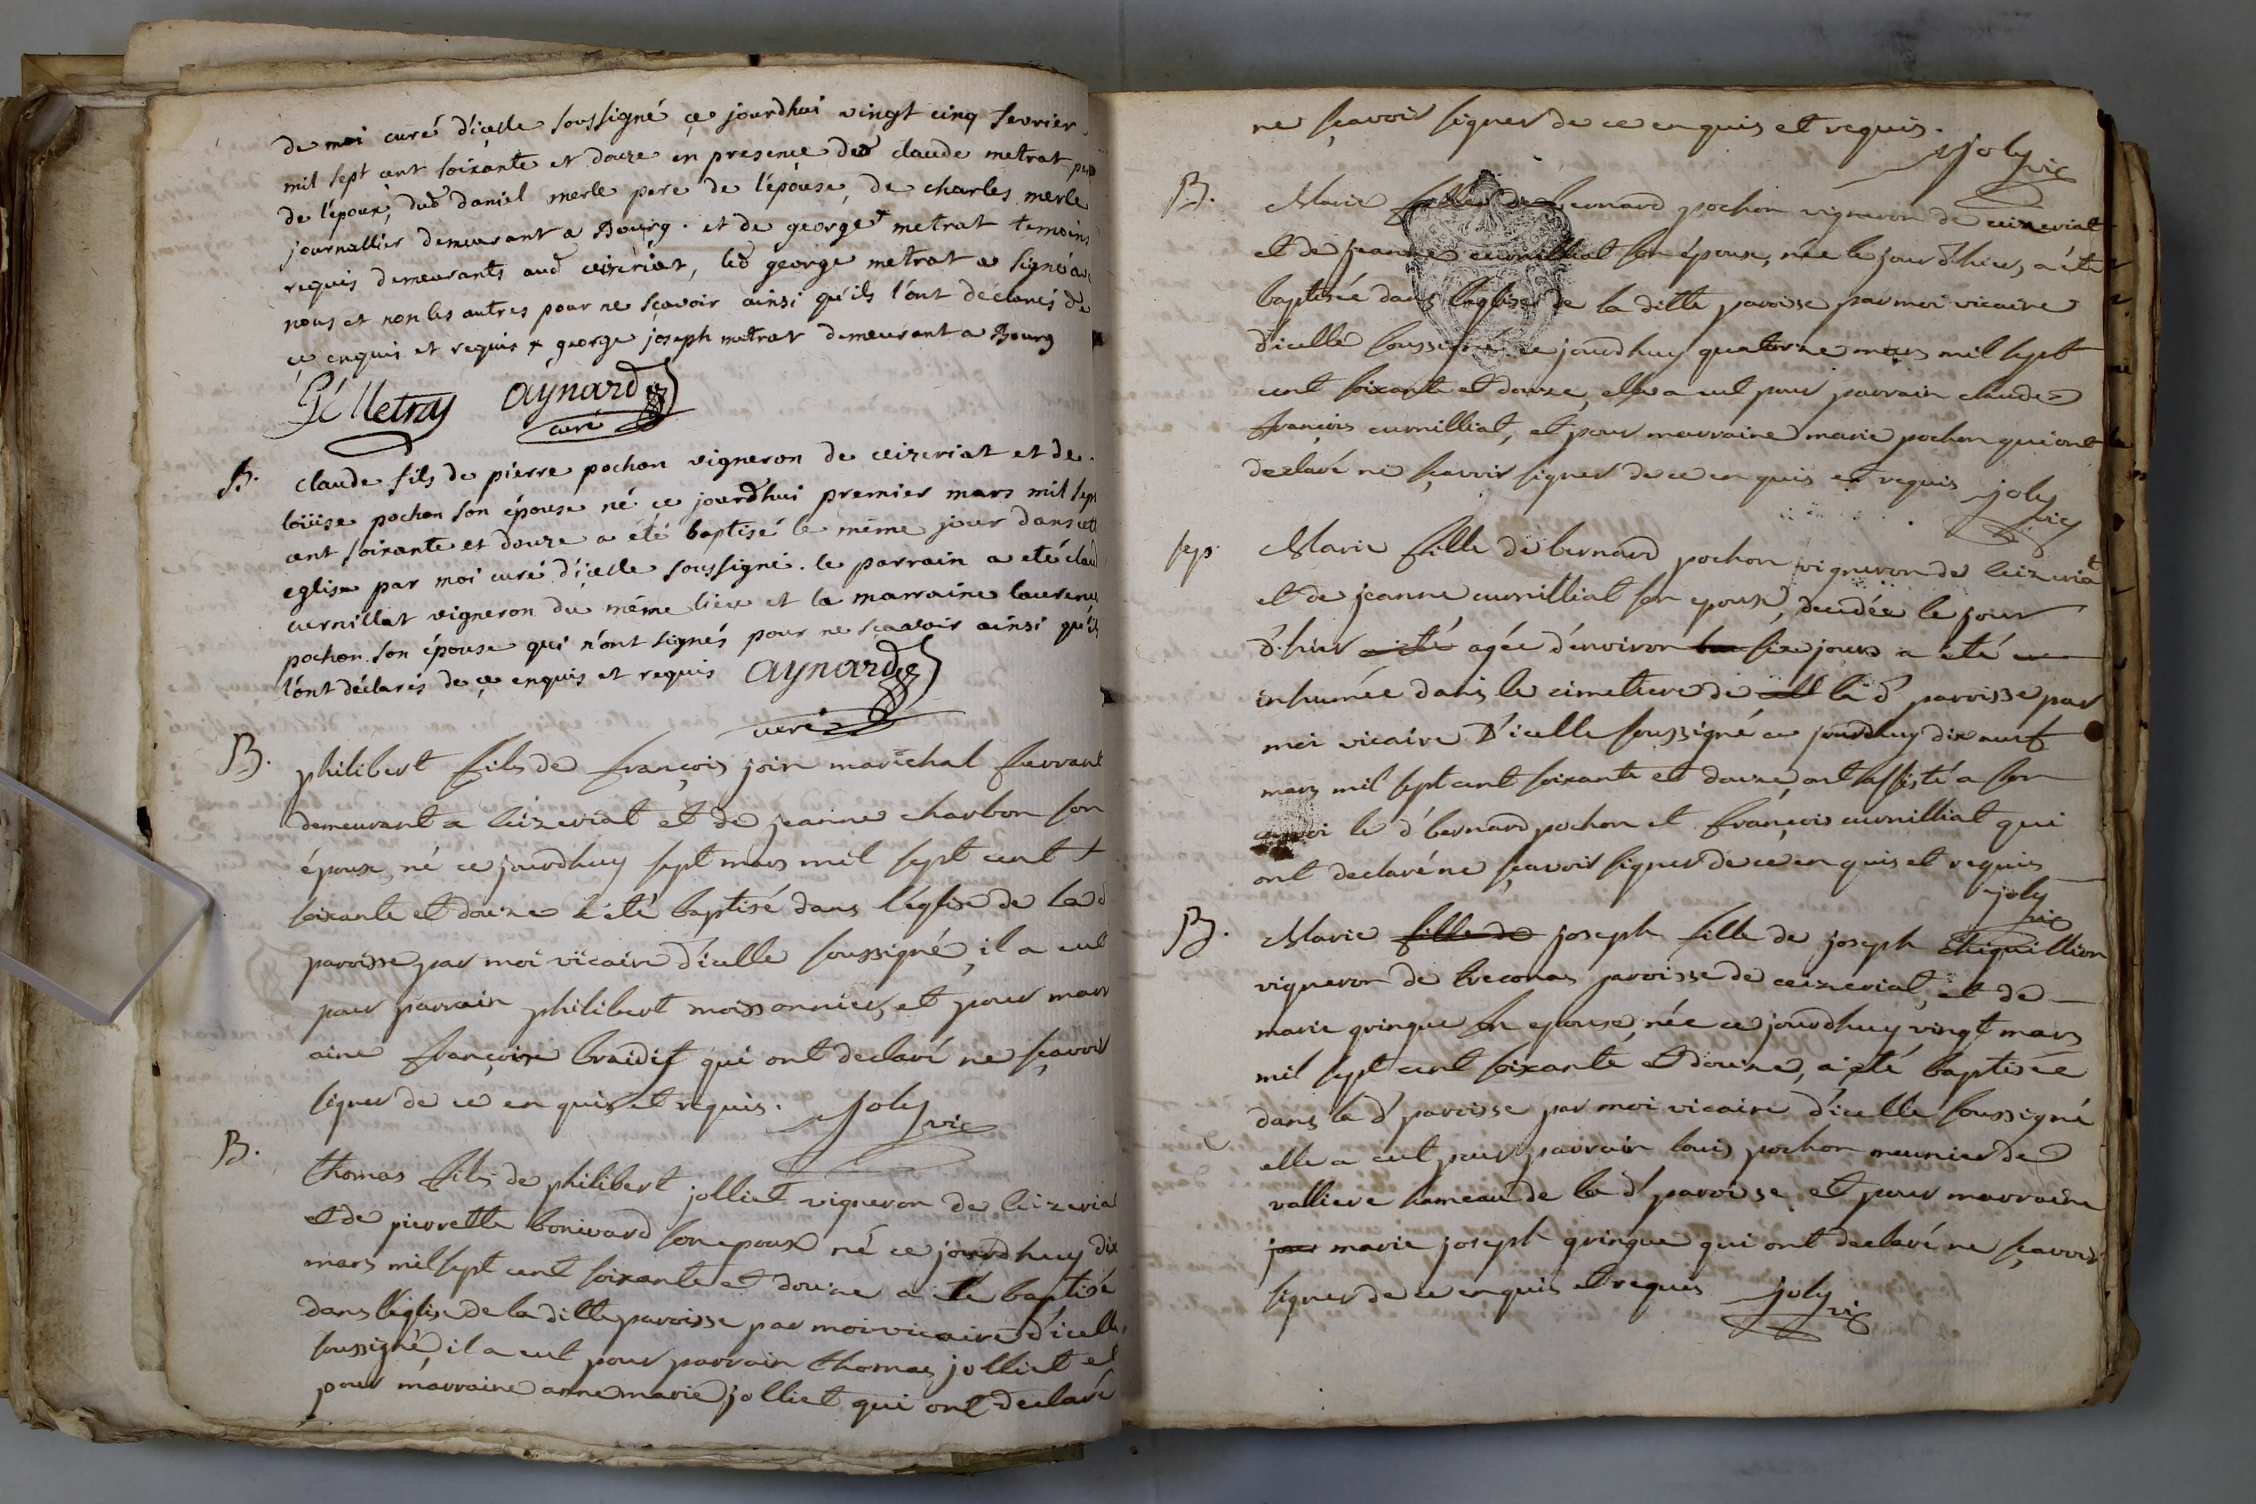 de moi curé d'icelle soussigné ce jourdhui vingt cinq fevrier
mil sept cent soixante et douze en presence dud claude metrat pere
de l'époux, dud daniel merle pere de l'épouse, de charles merle
journallier demeurant a Bourg. et de george metrat temoins
requis demeurants aud ceizeriat, led george metrat a signé avec
nous et non les autres pour ne sçavoir ainsi qu'ils l'ont déclarés de
ce enquis et requis x george joseph metrat demeurant a Bourg
Metras aynard
curé
B. claude fils de pierre pochon vigneron de ceizeriat et de
loüise pochon son épouse né ce jourd'hui premier mars mil sept
cent soixante et douze a été baptisé le même jour dans cette
eglise par moi curé d'icelle soussigné. le parrain a eté claude
curnillat vigneron du même lieu et la marraine laurence
pochon son épouse qui n'ont signés pour ne sçavoir ainsi qu'ils
l'ont déclarés de ce enquis et requis aynard
curé
B. philibert fils de françois join maréchal ferrant
demeurant a ceizeriat et de jeanne charbon son
épouse, né ce jourdhuy sept mars mil sept cent
soixante et douze a été baptisé dans l'église de la d
paroisse par moi vicaire d'icelle soussigné, il a eut
pour parrain philibert moissonnier, et pour marr
aine françoise braidit qui ont declaré ne sçavoir
signer de ce en quis et requis. Joly vic
B. thomas fils de philibert jolliet vigneron de ceizeria
et de pierrette bonivard son epouse né ce jourdhuy dix
mars mil sept cent soixante et douze a été baptisé
dans l'église de la ditte paroisse par moi vicaire d'icelle
soussigné, il a eut pour parrain thomas jolliet et
pour marraine anne marie jolliet qui ont declaré
ne sçavoir signer de ce enquis et requis.
Joly vic
B. Marie fille de bernard pochon vigneron de ceizeriat
et de jeanne curnilliat son épouse, née le jour d'hier, a été
baptisée dans l'eglise de la ditte paroisse par moi vicaire
d'icelle soussigné ce jourdhuy quatorze mars mil sept
cent soixante et douze, elle a eut pour parrain claude
françois curnilliat, et pour marraine marie pochon qui ont
declaré ne sçavoir signer de ce enquis et requis joly
vic
sep. Marie fille de bernard pochon vigneron de ceizeriat
et de jeanne curnilliat son epouse, decedée le jour
d'hier a été agée d'environ six jours a été
inhumée dans le cimetiere de la d' paroisse par
moi vicaire d'icelle soussigné ce jourdhuy dix neuf
mars mil sept cent soixante et douze, ont assisté a son
convoi le d' bernard pochon et françois curnilliat qui
ont declaré ne sçavoir signer de ce en quis et requis
joly
vic
B. Marie fille de joseph fille de joseph Chiquillion
vigneron de treconas paroisse de ceizeriat, et de
marie gringue son epouse, née ce jourdhuy vingt mars
mil sept cent soixante et douze, a été baptisée
dans la d' paroisse par moi vicaire d'icelle soussigné
elle a eut pour parrain louis pochon meunier de
valliere hameau de la d' paroisse et pour marraine
marie joseph gringue qui ont declaré ne sçavoir
signer de ce enquis et requis joly vic